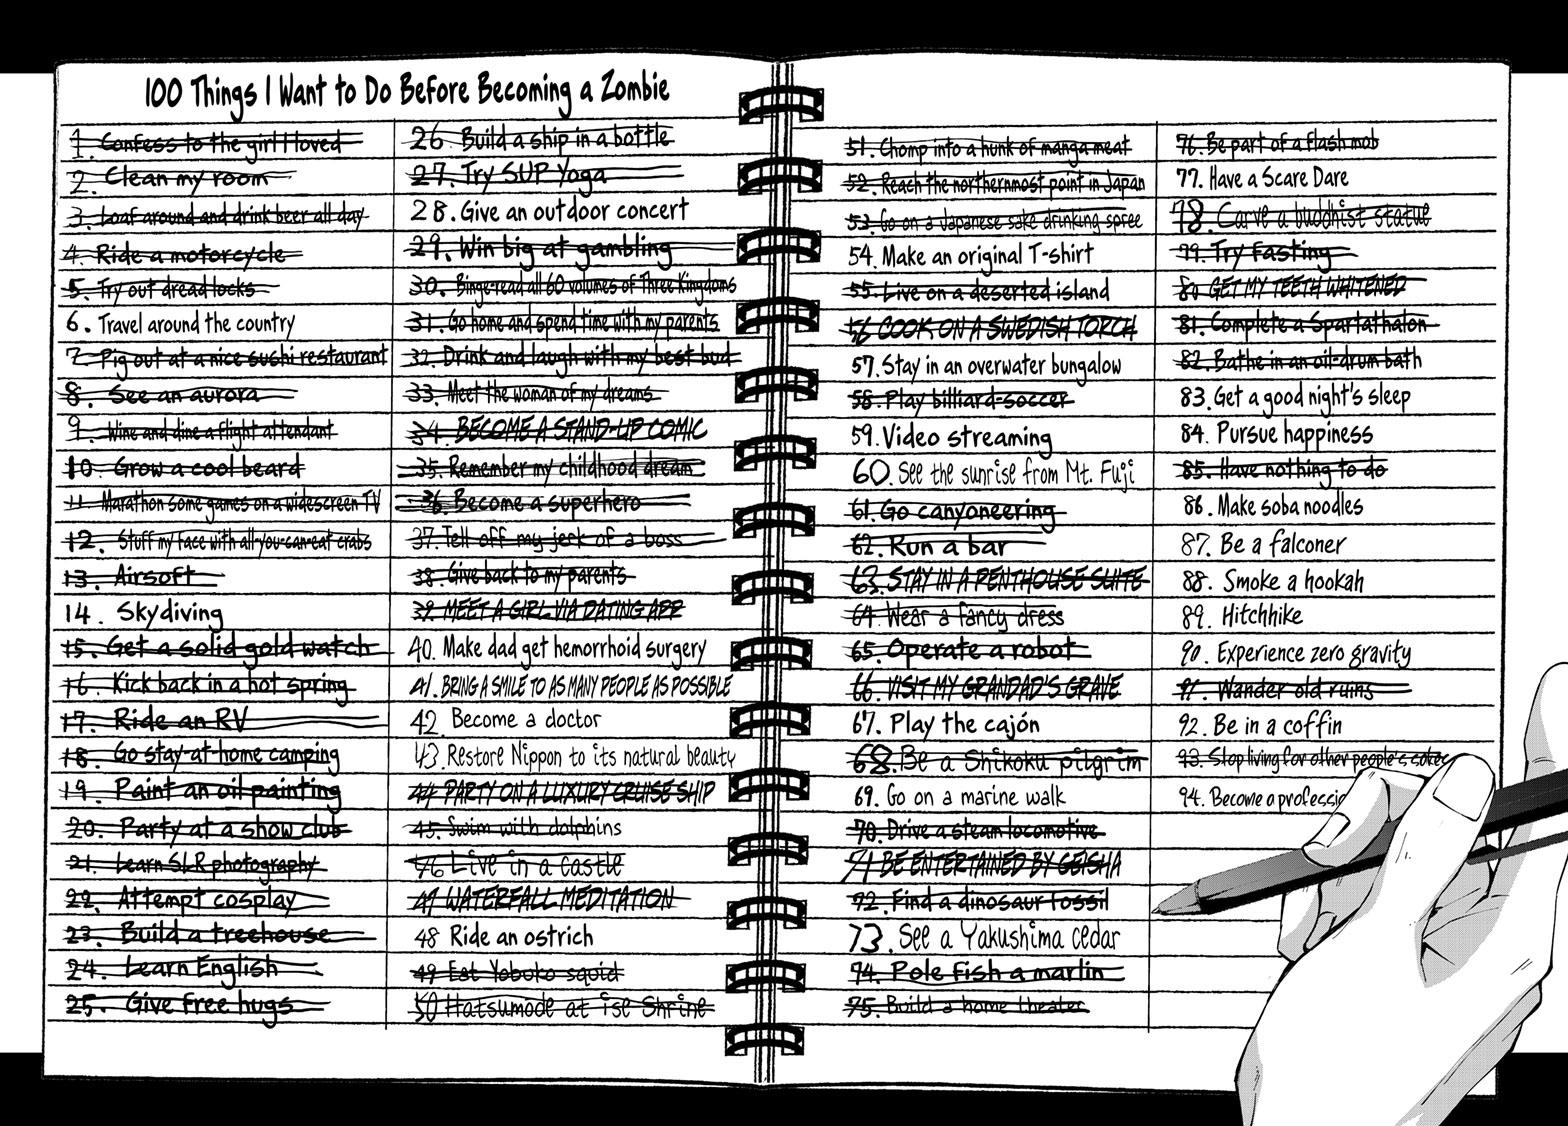 100 Things I Want to Do Before Becoming a Zombie
1. Confess to the girl I loved
2. Clean my room
3. Loaf around and drink beer all day
4. Ride a motorcycle
5. Try out dread locks
6. Travel around the country
7. Pig out at a nice sushi restaurant
8. See an aurora
9. Wine and dine a flight attendant
10. Grow a cool beard
11. Marathon some games on a widescreen TV
12. Stuff my face with all-you-can-eat crabs
13. Airsoft
14. Skydiving
15. Get a solid gold watch
16. Kick back in a hot spring
17. Ride an RV
18. Go stay-at-home camping
19. Paint an oil painting
20. Party at a show club
21. Learn SLR photography
22. Attempt cosplay
23. Build a treehouse
24. Learn English
25. Give free hugs
26. Build a ship in a bottle
27. Try SUP Yoga
28. Give an outdoor concert
29. Win big at gambling
30. Binge-read all 60 volumes of Three Kingdoms
31. Go home and spend time with my parents
32. Drink and laugh with my best bud
33. Meet the woman of my dreams
34. BECOME A STAND-UP COMIC
35. Remember my childhood dream
36. Become a superhero
37. Tell off my jerk of a boss
38. Give back to my parents
39. MEET A GIRL VIA DATING APP
40. Make dad get hemorrhoid surgery
41. BRING A SMILE TO AS MANY PEOPLE AS POSSIBLE
42. Become a doctor
43. Restore Nippon to its natural beauty
44 PARTY ON A LUXURY CRUISE SHIP
45. Swim with dolphins
46 Live in a castle
47 WATERFALL MEDITATION
48 Ride an ostrich
49 Eat Yobuko squid
50 Hatsumode at ise Shrine
51. Chomp into a hunk of manga meat
52. Reach the northernmost point in Japan
53. Go on a Japanese sake drinking spree
54. Make an original T-shirt
55. Live on a deserted island
56 COOK ON A SWEDISH TORCH
57. Stay in an overwater bungalow
58. Play billiard-soccer
59. Video streaming
60. See the sunrise from Mt. Fuji
61. Go canyoneering
62. Run a bar
63. STAY IN A PENTHOUSE SUITE
64. Wear a fancy dress
65. Operate a robot
66. VISIT MY GRANDAD'S GRAVE
67. Play the cajón
68. Be a Shikoku pilgrim
69. Go on a marine walk
70. Drive a steam locomotive
71 BE ENTERTAINED BY GEISHA
72. Find a dinosaur fossil
73. See a Yakushima cedar
74. Pole fish a marlin
75. Build a home theater
76. Be part of a flash mob
77. Have a Scare Dare
78. Carve a buddhist statue
79. Try Fasting
80 GET MY TEETH WHITENED
81. Complete a Spartathalon
82. Bathe in an oil-drum bath
83. Get a good night's sleep
84. Pursue happiness
85. Have nothing to do
86. Make soba noodles
87. Be a falconer
88. Smoke a hookah
89. Hitchhike
90. Experience zero gravity
91. Wander old ruins
92. Be in a coffin
93. Stop living for other people's sakes
94. Become a professio